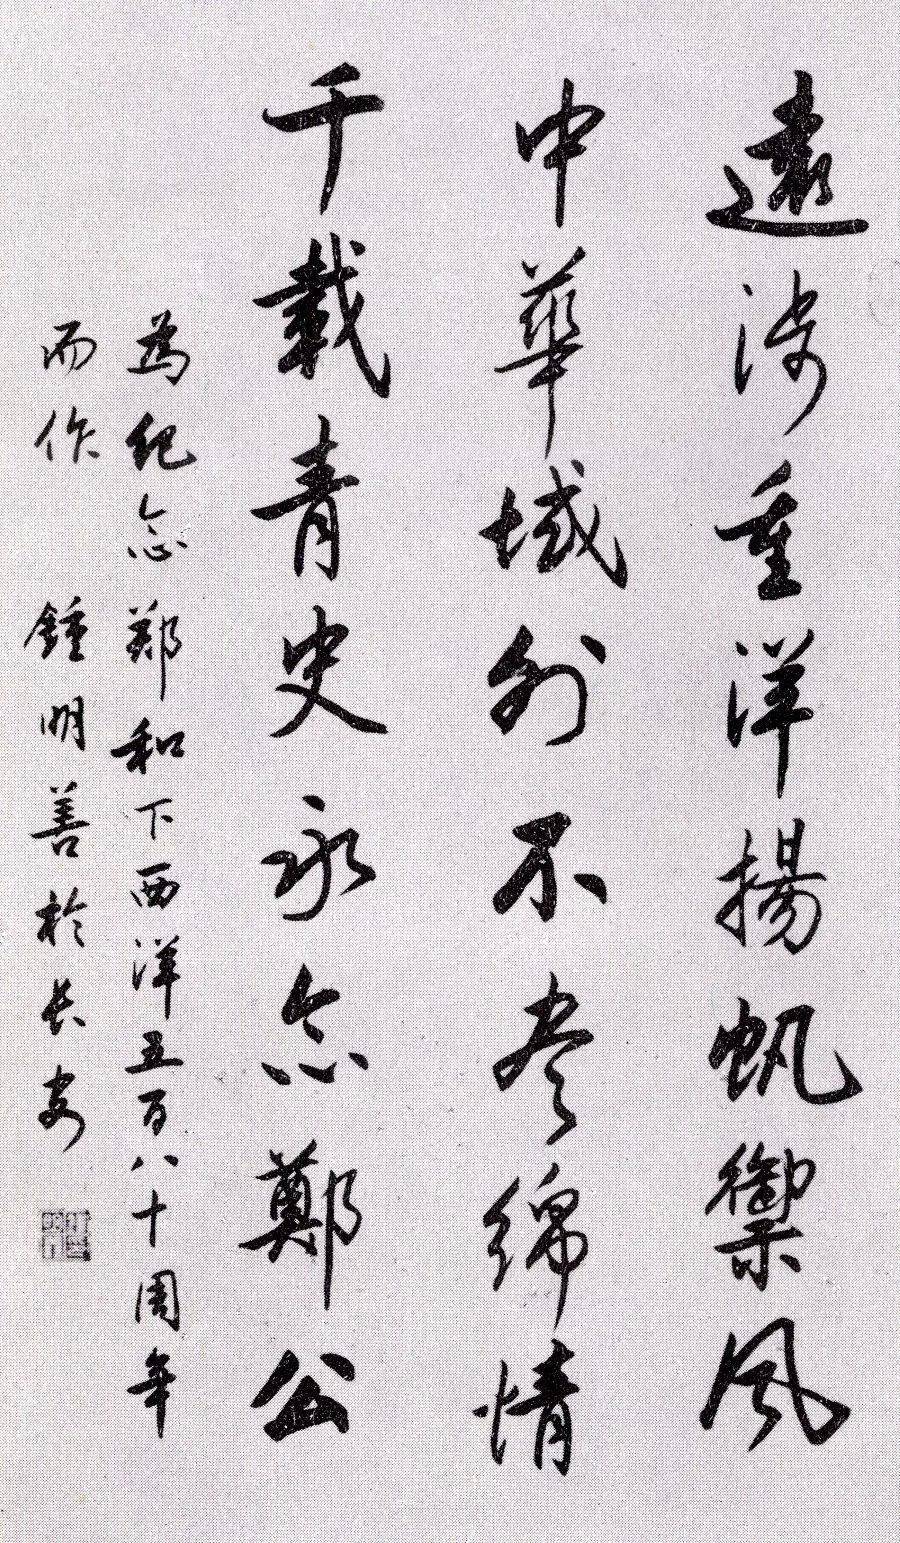 遠涉重洋揚帆禦風
中華域外不尽綿情
千載青史永念鄭公
為紀念郑和下西洋五百八十周年
而作 鍾明善於長安